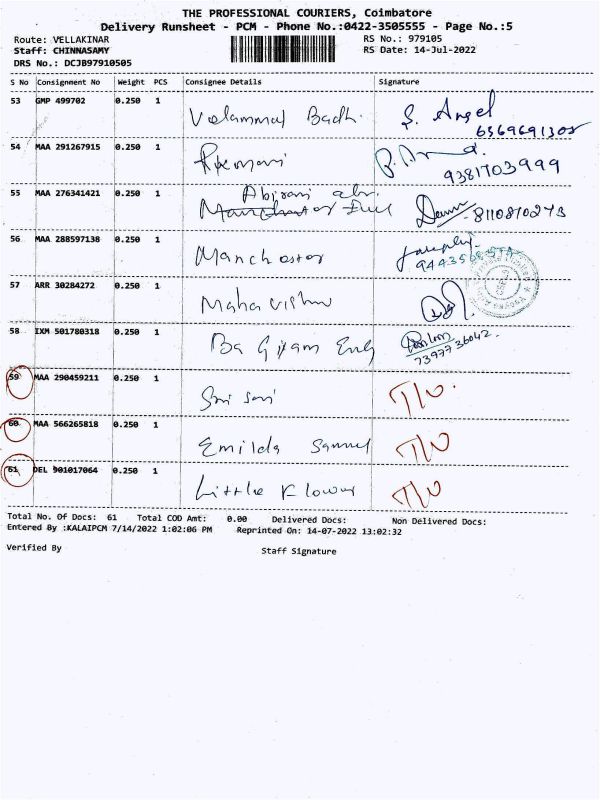 THE PROFESSIONAL COURIERS, Coimbatore
Delivery Runsheet - PCM - Phone No.:0422-3505555 - Page No.:5
Route: VELLAKINAR RS No.: 979105
Staff: CHINNASAMY RS Date: 14-Jul-2022
DRS No.: DCJB97910505
S No Consignment No Weight PCS Consignee Details Signature
53 GMP 499702 0.250 1 Velammal Badh. S. Angel
6369691308
54 MAA 291267915 0.250 1
9381703999
55 MAA 276341421 0.250 1 Abirami
8110810273
56 MAA 288597138 0.250 1 Manchester
57 ARR 30284272 0.250 1 Maha vishnu
58 IXM 501780318 0.250 1 Ba Gyam Eng
7397736042.
59 MAA 290459211 0.250 1 Sri sai T/O.
60 MAA 566265818 0.250 1 Emilda Samuel T/O
61 DEL 901017064 0.250 1 Little Flower T/O
Total No. Of Docs: 61 Total COD Amt: 0.00 Delivered Docs: Non Delivered Docs:
Entered By :KALAIPCM 7/14/2022 1:02:06 PM Reprinted On: 14-07-2022 13:02:32
Verified By Staff Signature